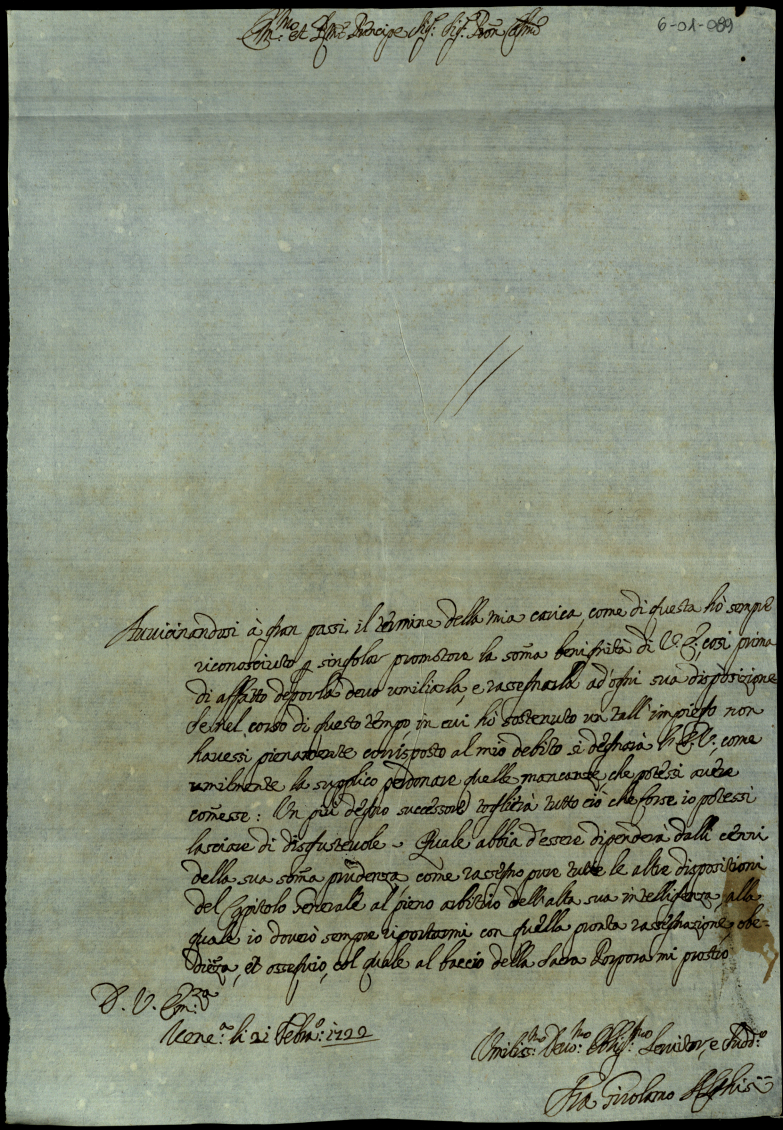 6-01-089
Em.mo et Rmo Principe Sig.r Sig.r Pron Colmo
Avvicinandosi à gran passi il termine della mia carica, come di questa hò sempre
riconosciuto p singolar promotore la soma benignità di V. E., così prima
di affatto deporla devo umiliarla, e rassegnarla ad'ogni sua disposizione
Se nel corso di questo tempo, in cui hò sostenuto un tall'impiego non
havessi pienamente corrisposto al mio debito si degnarà V. E., come
umilmente la supplico perdonare quelle mancanze, che potessi avere
comesse: Un più degno successore toglierà tutto ciò che forse io potessi
lasciare di disgustevole. Quale abbia d'essere dipenderà dalli cenni
della sua soma prudenza, come rassegno pure tutte le altre disposizioni
del Capitolo Generale al pieno arbitrio dell'alta sua intelligenza, alla
quale io doverò sempre riportarmi con quella pronta rassegnazione, obe-
dienza, et ossequio, col quale al baccio della Sacra Porpora mi prostro
D. V. Em.za
Vene.a li 21 Febra.o 1722
Umiliss.mo Devo.mo Obblig.mo Servitor, e Sudd.o
Fra Girolamo